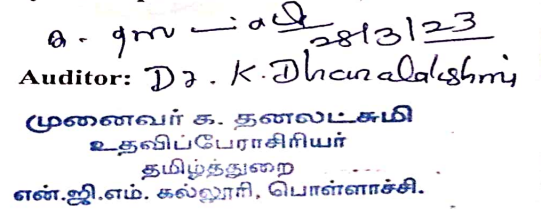 28/3/23
Auditor: Dr. K. Dhanalakshmi
முனைவர் க. தனலட்சுமி
உதவிப்பேராசிரியர்
தமிழ்த்துறை
என்.ஜி.எம். கல்லூரி, பொள்ளாச்சி.